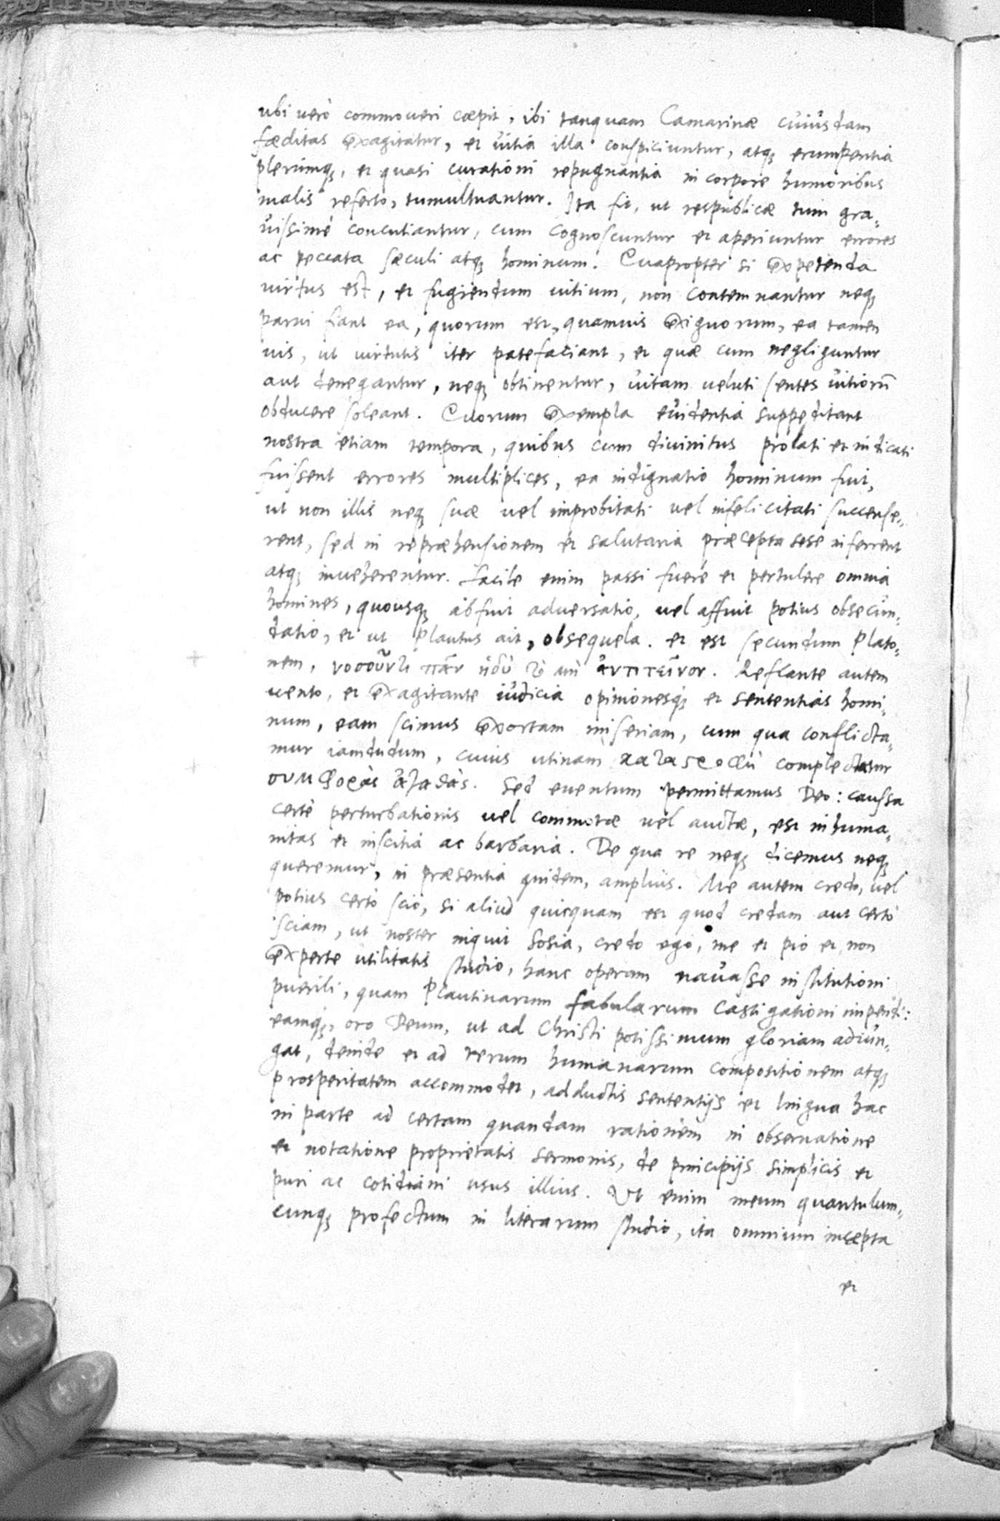 ubi verò commoveri cœpit, ibi tanquam Camarinæ cuiusdam
fæditas exagitatur, et vitia illa conspiciuntur, atq; erumpentia
plerũnq;, et quasi curationi repugnantia in corpore humoribus
malis referto, tumultuantur. Ita fit, ut respublicæ tum gra-
vissimè concutiantur, cum cognoscuntur et aperiuntur errores
ac peccata sæculi atq; hominum. Quapropter si expetenda
virtus est, et fugiendum vitium, non contemnantur neq;
parvi fiant ea, quorum est, quamvis exiguorum, ea tamen
vis, ut virtutis iter patefaciant, et quæ cum negliguntur
aut denegantur, neq; obtinentur, vitam veluti sentes vitiorũ
obducere soleant. Quorum exempla evidentia suppeditant
nostra etiam tempora, quibus cum divinitus prolati et indicati
fuissent errores multiplices, ea indignatio hominum fuit,
ut non illis neq; suæ vel improbitati vel infelicitati succense-
rent, sed in repræhensionem et salutaria præcepta sese inferrent
atq; inveherentur. Facile enim passi fuere et pertulere omnia
homines, quousq; abfuit adversatio, vel affuit potius obsecun-
datio, et ut Plautus ait, obsequela. et est secundum Plato-
nem, νοσοῦντι πᾶν ἡδὺ τὸ μὴ ἀντιτεῖνον. Reflante autem
vento, et exagitante iudicia opinionesq; et sententias homi-
num, eam scimus exortam miseriam, cum qua conflicta-
mur iamdudum, cuius utinam καταστροφὴ complectatur
συμφορὰς ἀγαθάς. Sed eventum permittamus Deo: caussa
certè perturbationis vel commotæ vel auctæ, est inhuma-
nitas et inscitia ac barbaria. De qua re neq; dicemus neq;
queremur, in præsentia quidem, amplius. Me autem credo, vel
potius certò scio, si aliud quicquam est quod credam aut certò
sciam, ut noster inquit Sosia, credo ego, me et pio et non
experte utilitatis studio, hanc operam navasse institutioni
puerili, quam Plautinarum fabularum castigationi impendi:
eamq; oro Deum, ut ad Christi potissimum gloriam adiun-
gat, deinde et ad rerum humanarum compositionem atq;
prosperitatem accommodet, adductis sententijs et lingua hac
in parte ad certam quandam rationem in observatione
et notatione proprietatis sermonis, de principijs simplicis et
puri ac cotidiani usus illius. Ut enim meum quantulum-
cunq; profectum in literarum studio, ita omnium incepta
et